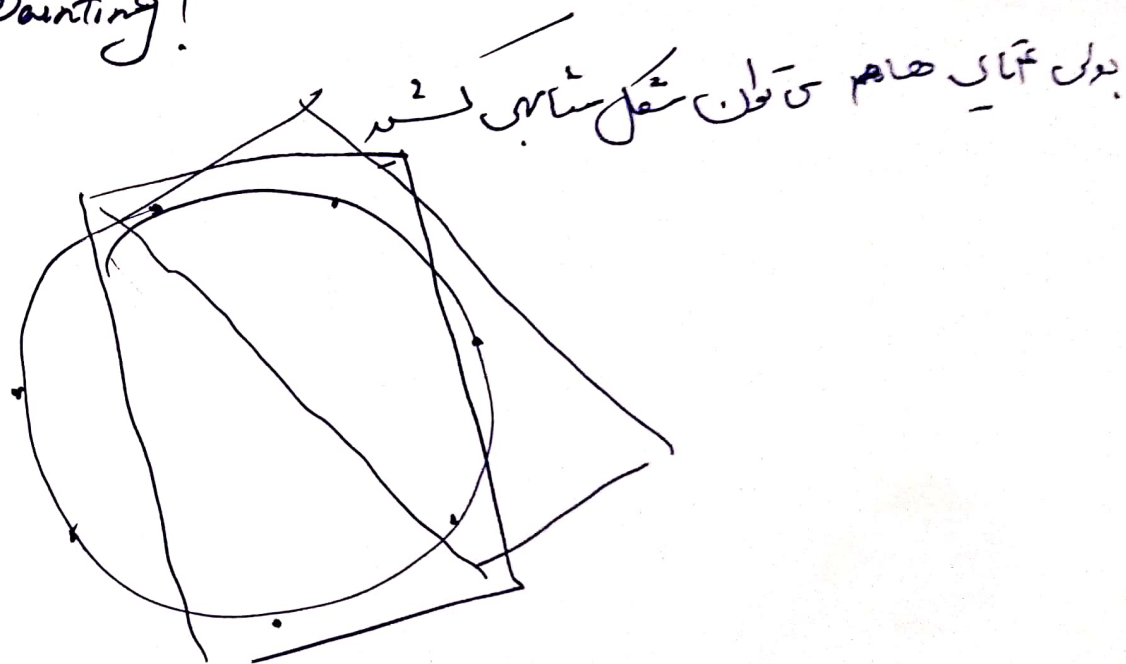 Painting!
برای ۴ تای ها هم می توان شکل مشابهی کشید